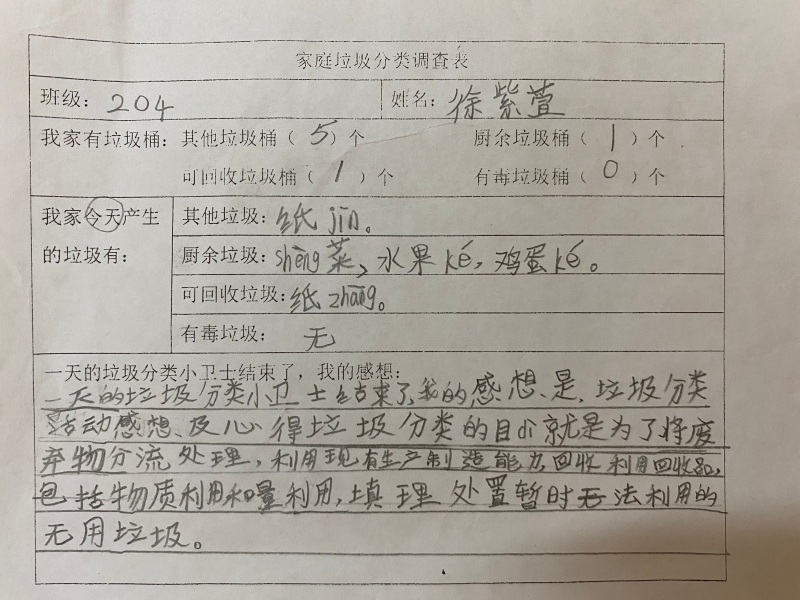 家庭垃圾分类调查表
班级：204 姓名：徐紫萱
我家有垃圾桶：其他垃圾桶（5）个 厨余垃圾桶（1）个
可回收垃圾桶（1）个 有毒垃圾桶（0）个
我家今天产生的垃圾有：
其他垃圾：纸jīn。
厨余垃圾：shēng菜、水果ké，鸡蛋ké。
可回收垃圾：纸zhāng。
有毒垃圾：无
一天的垃圾分类小卫士结束了，我的感想：
一天的垃圾分类小卫士结束了，我的感想、是，垃圾分类
活动感想、及心得垃圾分类的目小就是为了将废
弃物分流处理，利用现有生产制造能力回收利用回收品，
包括物质利用和量利用，填理处置暂时无法利用的
无用垃圾。